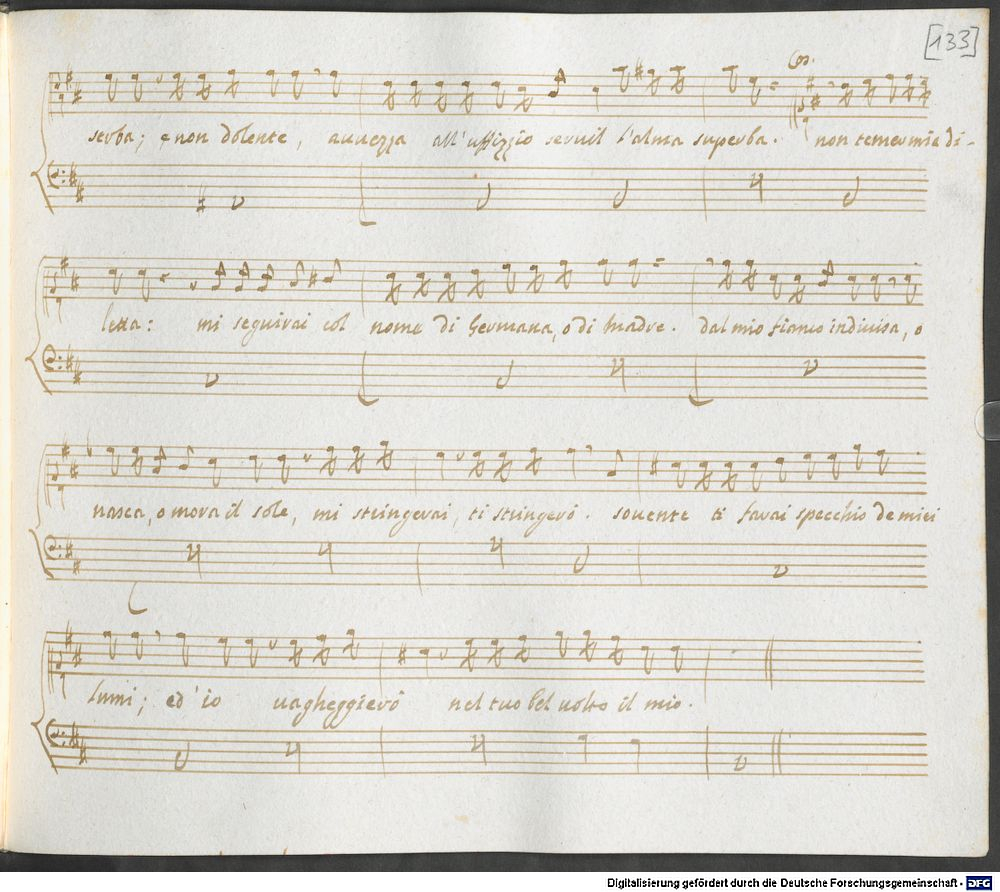 [133]
Cos.
serba; e non dolente, auuezza all'uffizzio seruil l'alma superba. non temer mia di-
letta: mi seguirai col nome di Germana, o di madre. dal mio fianco indiuisa, o
nasca, o mora il sole, mi stringerai, ti stringerò. souente ti farai specchio de miei
lumi; ed'io uagheggierò nel tuo bel uolto il mio.
Digitalisierung gefördert durch die Deutsche Forschungsgemeinschaft - DFG